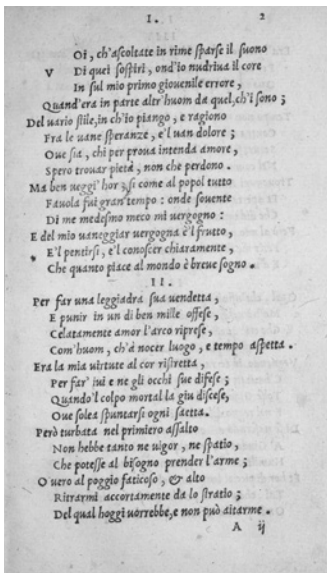 I. 2
Oi, ch'ascoltate in rime sparse il suono
V Di quei sospiri, ond'io nudriua il core
In sul mio primo giouenile errore,
Quand'era in parte altr'huom da quel, ch'i sono;
Del uario stile, in ch'io piango, e ragiono
Fra le uane speranze, e'l uan dolore;
Oue sia, chi per proua intenda amore,
Spero trouar pietà, non che perdono.
Ma ben ueggi'hor, si come al popol tutto
Fauola fui gran tempo: onde souente
Di me medesmo meco mi uergogno:
E del mio uaneggiar uergogna è'l frutto,
E'l pentirsi, e'l conoscer chiaramente,
Che quanto piace al mondo è breue sogno.
II.
Per far una leggiadra sua uendetta,
E punir in un di ben mille offese,
Celatamente amor l'arco riprese,
Com'huom, ch'a nocer luogo, e tempo aspetta.
Era la mia uirtute al cor ristretta,
Per far' iui e ne gli occhi sue difese;
Quando'l colpo mortal la giu discese,
Oue solea spuntarsi ogni saetta.
Però turbata nel primiero assalto
Non hebbe tanto ne uigor, ne spatio,
Che potesse al bisogno prender l'arme;
O uero al poggio faticoso, & alto
Ritrarmi accortamente da lo stratio;
Del qual hoggi uorrebbe, e non può aitarme.
A ij